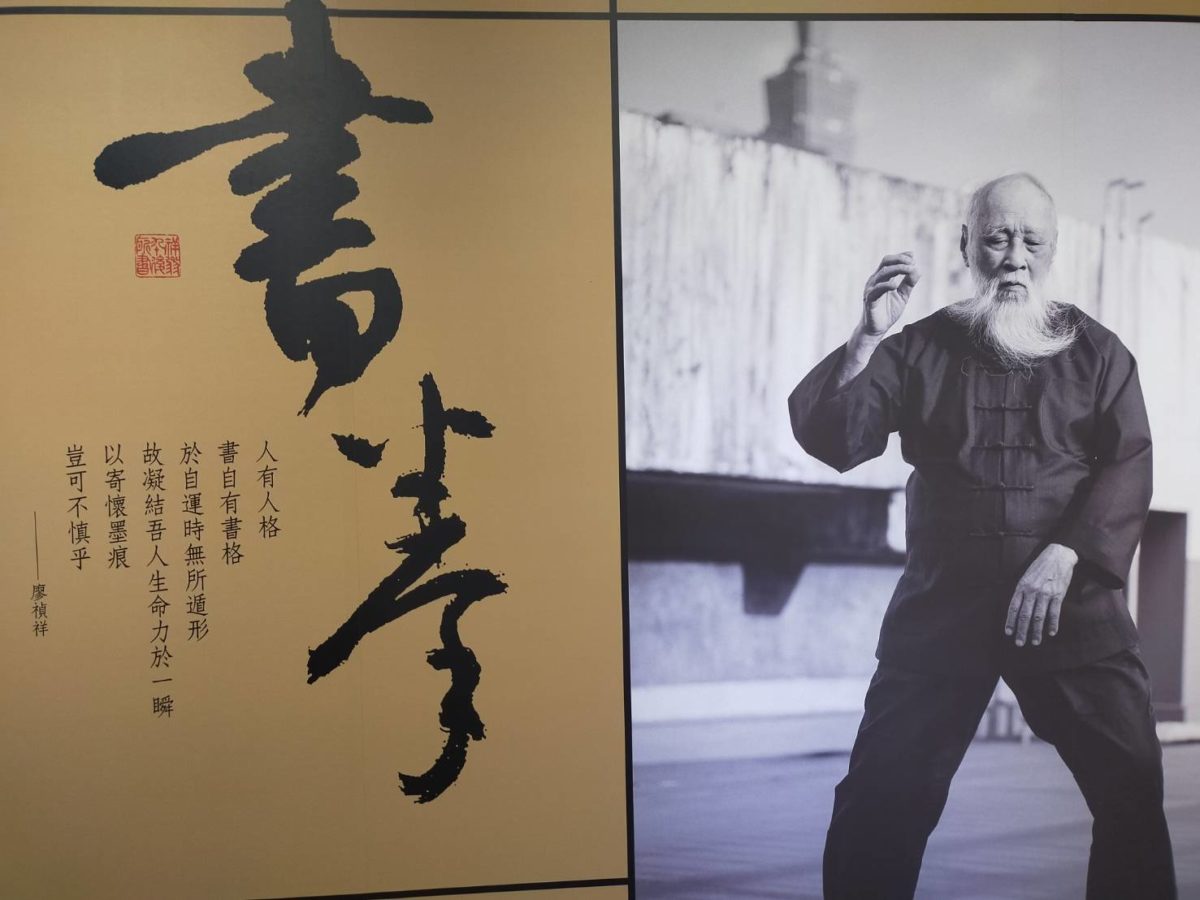 書拳
人有人格
書自有書格
於自運時無所遁形
故凝結吾人生命力於一瞬
以寄懷墨痕
豈可不慎乎
——廖禎祥